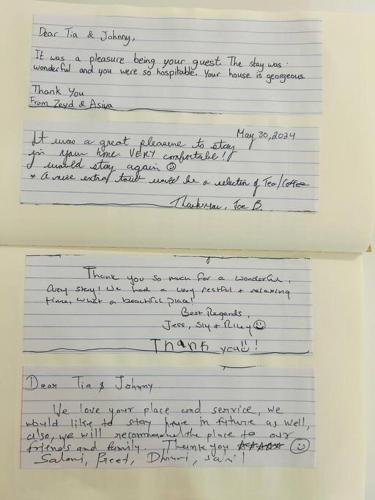 Dear Tia & Johnny,
It was a pleasure being your guest. The stay was
wonderful and you were so hospitable. Your house is georgeous
Thank You
From Zeyd & Asiya
May 30, 2024
It was a great pleasure to stay
in your home VERY comfortable!
I would stay again ☺
* A nice extra touch would be a selection of Tea/Coffee
Thank you, Joe B.
Thank you so much for a wonderful,
stay! We had a very restful & relaxing
time. What a beautiful place!
Best Regards,
Jess, Sly & Riley ☺
Thank you!!
Dear Tia & Johnny
We love your place and service, we
would like to stay here in future as well,
also, we will recommend the place to our
friends and family. Thank you ☺
Saloni, Preet,